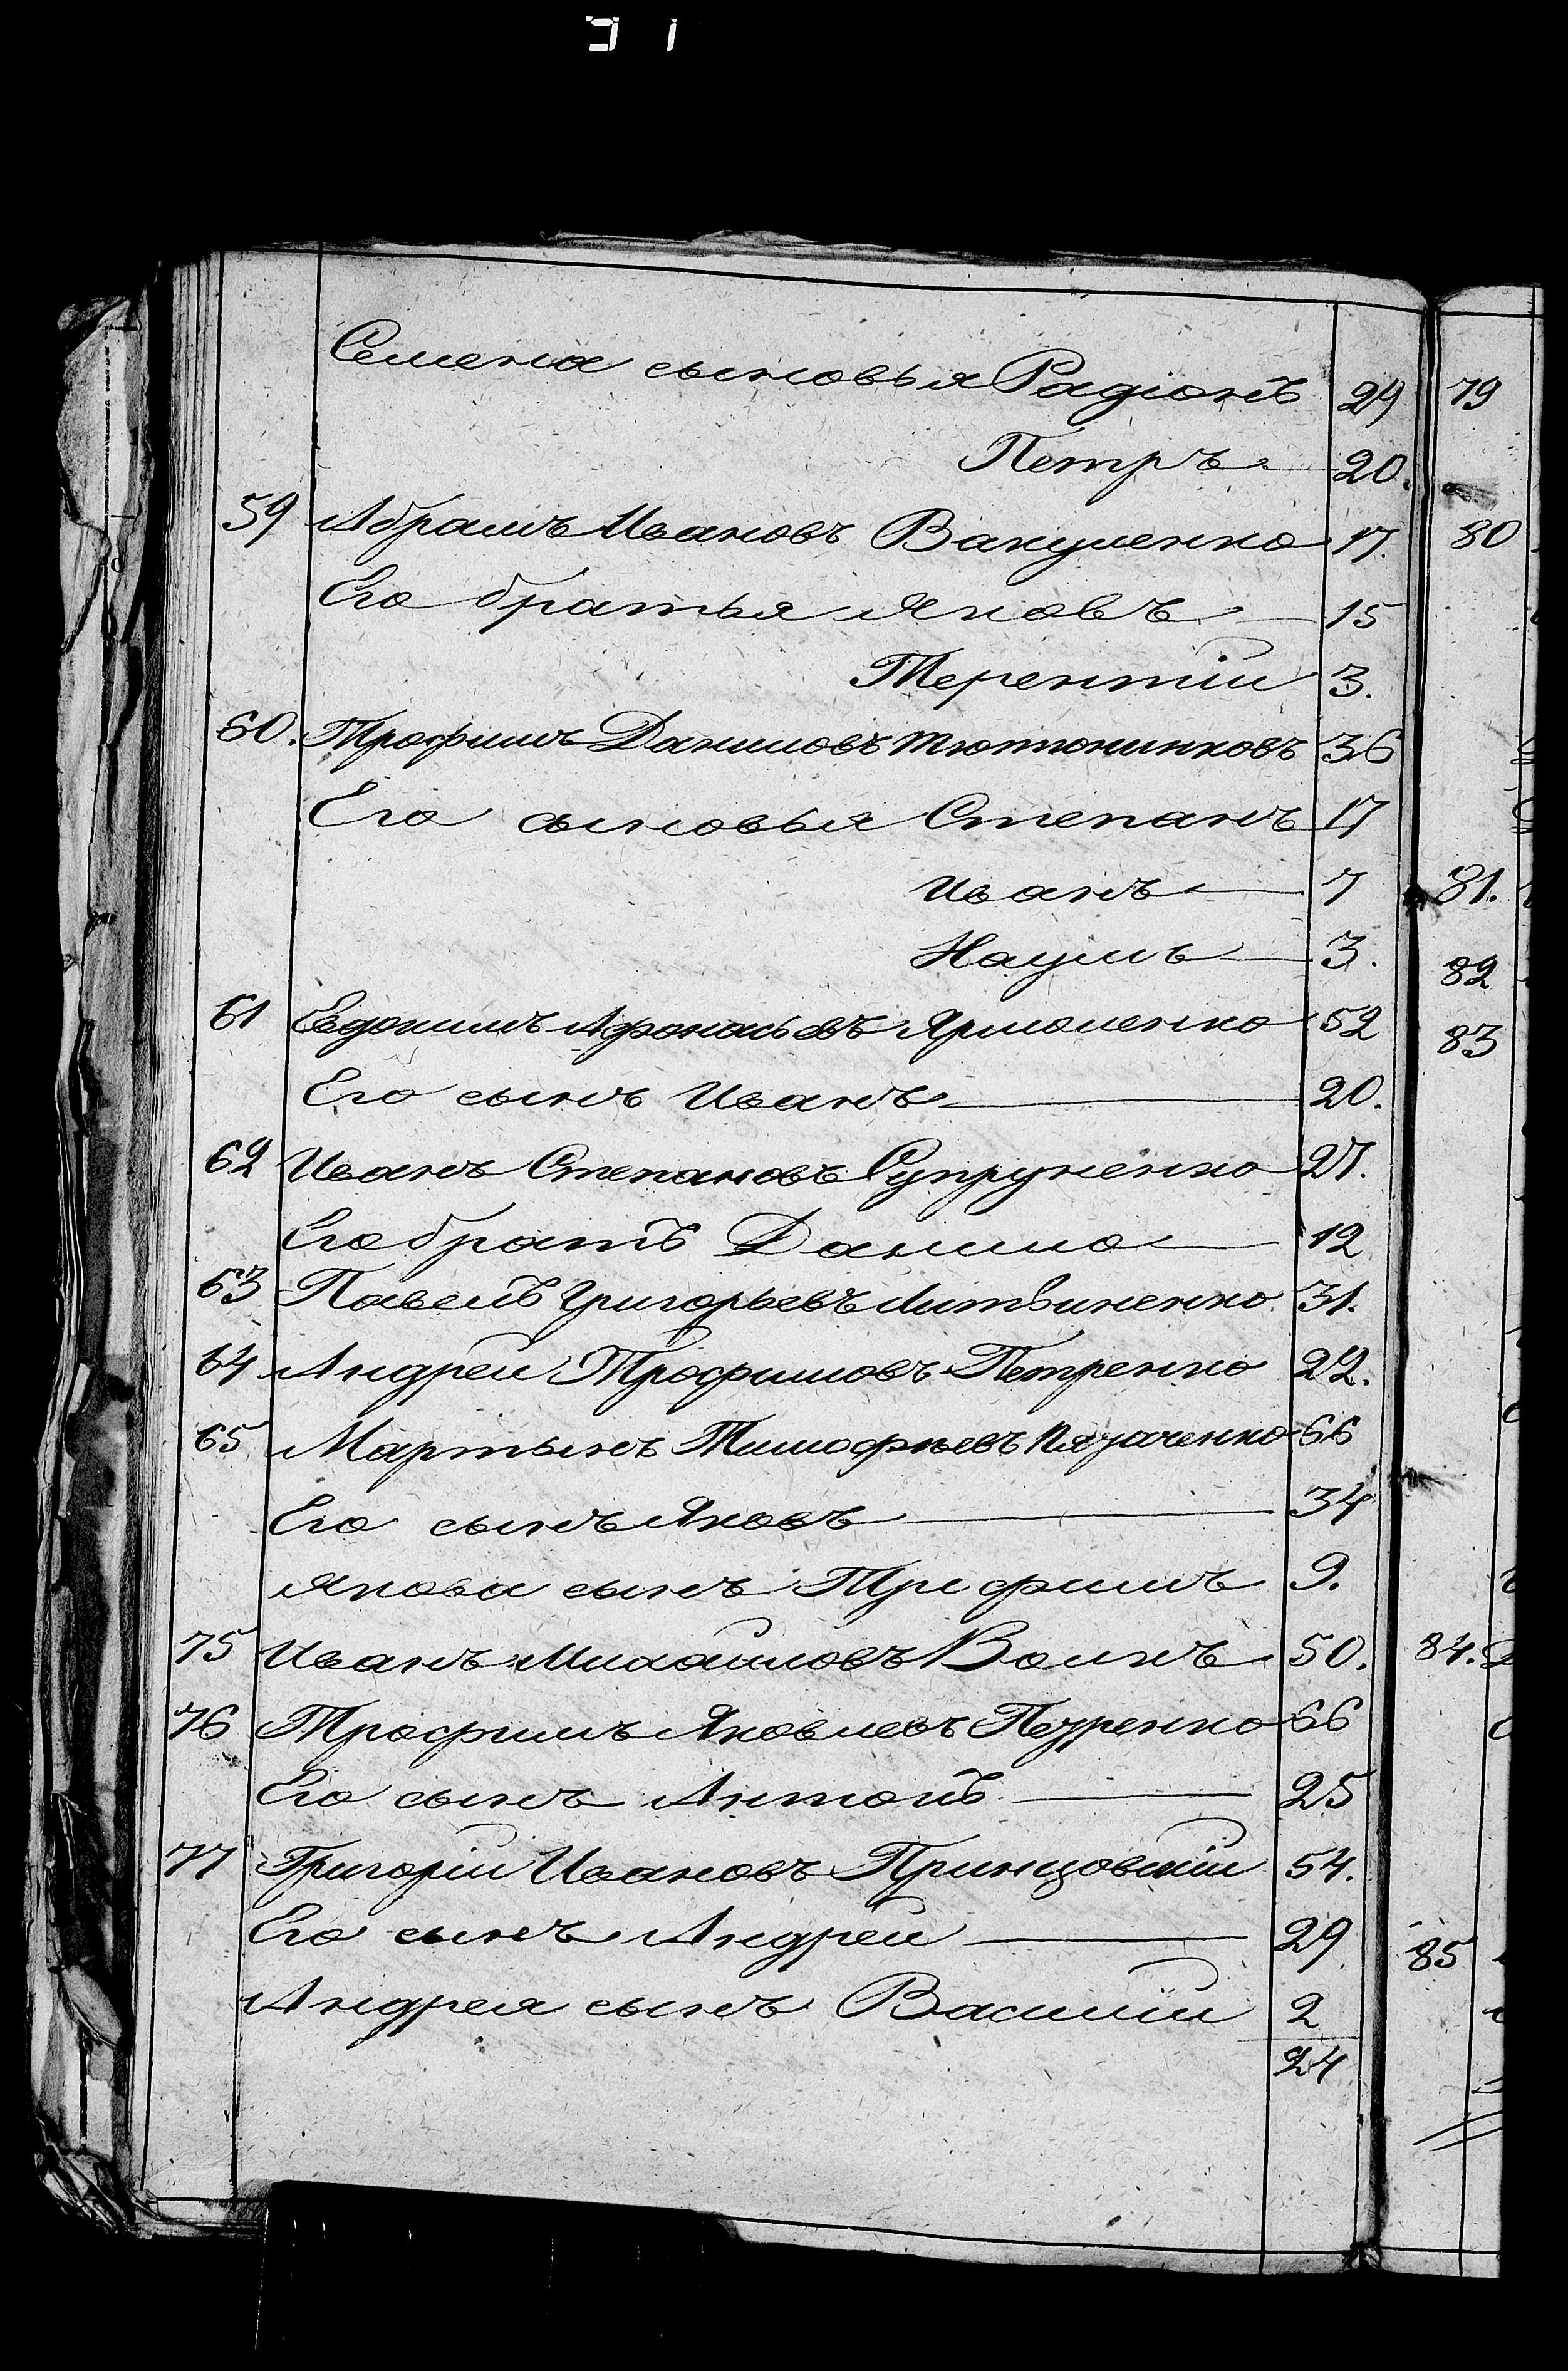 Семена сыновья Радіонъ 29
Петръ 20.
59 Абрамъ Ивановъ Вакуленко 17.
Его братья Яковъ 15
Терентій 3.
60. Трофимъ Даниловъ Тютюнниковъ 36
Его сыновья Степанъ 17
Иванъ 7
Наумъ 3.
61 Евдокимъ Афонасьевъ Ярмоленко 52
Его сынъ Иванъ 20.
62 Иванъ Степановъ Супруненко 27.
Его братъ Данило 12
63 Павелъ Григорьевъ Литвиненко 31.
64 Андрей Трофимовъ Петренко 22.
65 Мартынъ Тимофѣевъ 66
Его сынъ Яковъ 34
Якова сынъ Трифимъ 9.
75 Иванъ Михайловъ Волкъ 50.
76 Трофимъ Яковлевъ Петренко 66
Его сынъ Антонъ 25
77 Григорій Ивановъ 54.
Его сынъ Андрей 29
Андрея сынъ Василій 2
24
79
80
81.
82
83
84.
85